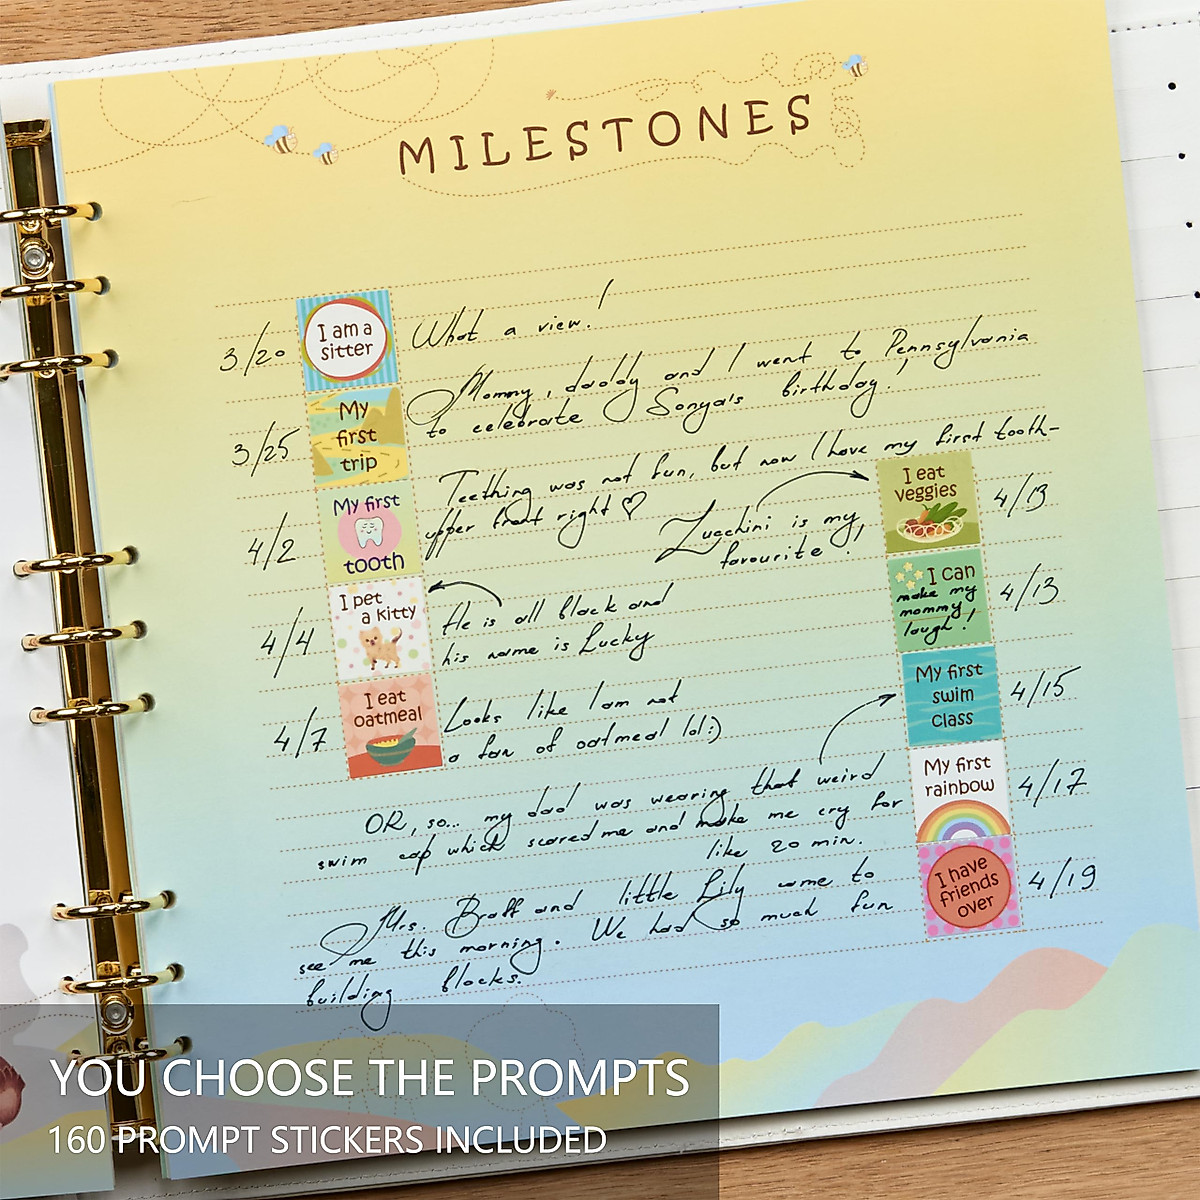 MILESTONES
3/20
I am a
sitter
What a view!
3/25
My
first
trip
Mommy, daddy and I went to Pennsylvania
to celebrate Sonya's birthday!
4/2
My first
tooth
Teething was not fun, but now I have my first tooth-
upper front right ♡
4/4
I pet
a Kitty
He is all black and
his name is Lucky
4/7
I eat
oatmeal
Looks like I am not
a fan of oatmeal lol:)
I eat
veggies
4/13
Zucchini is my
favourite!
I can
make my
mommy
laugh!
4/13
My first
swim
class
4/15
OK, so... my dad was wearing that weird
swim cap which scared me and make me cry for
like 20 min.
My first
rainbow
4/17
I have
friends
over
4/19
Mrs. Braff and little Lily came to
see me this morning. We had so much fun
building blocks.
YOU CHOOSE THE PROMPTS
160 PROMPT STICKERS INCLUDED